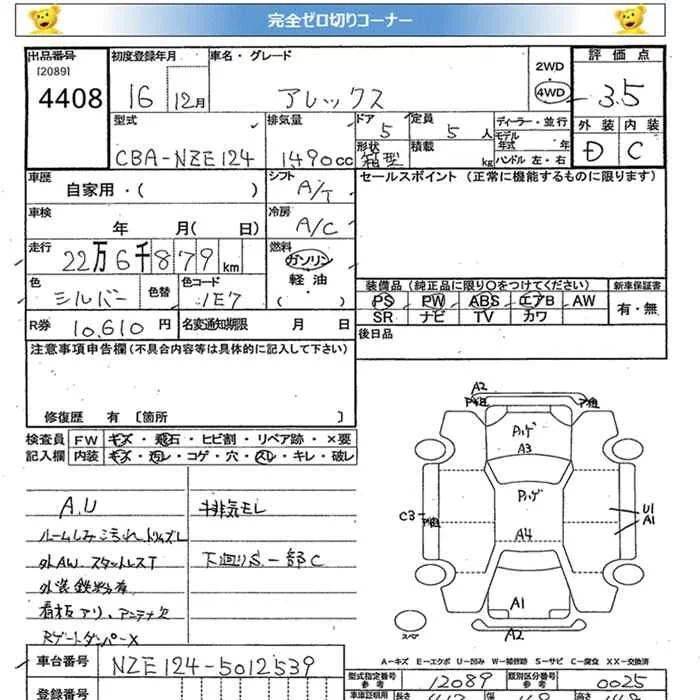 完全ゼロ切りコーナー
出品番号 初度登録年月 車名・グレード 2WD 評価点
[2089] 4408 16 12月 アレックス 4WD 3.5
型式 排気量 ドア 定員 ディーラー・並行 外装 内装
CBA-NZE124 1490cc 5 5人 モデル年式 年 D C
形状 箱型 積載 kg ハンドル 左・右
車歴 自家用・( ) シフト A/T セールスポイント (正常に機能するものに限ります)
車検 年 月( 日) 冷房 A/C
走行 22万6千879km 燃料 ガソリン 軽油 ( )
色 シルバー 色替 色コード 1E7 装備品 (純正品に限り○をつけてください) 新車保証書
PS PW ABS エアB AW 有・無
SR ナビ TV カワ
R券 10,610円 名変通知期限 月 日 後日品
注意事項申告欄(不具合内容等は具体的に記入して下さい)
修復歴 有 [箇所 ]
検査員 FW キズ・飛石・ヒビ割・リペア跡・×要
記入欄 内装 キズ・汚レ・コゲ・穴・スレ・キレ・破レ
A.U 排気モレ
ルームしみ
外AW. スタットレスT 下廻りS 一部C
外装鉄粉有
看板アリ、アンテナ欠
RゲートダンパーX
A2
Pハゲ
A3
Pハゲ
C3 U1
A1
A4
A1
A2
スペア
A-キズ E-エクボ U-凹み W-補修跡 S-サビ C-腐食 XX-交換済
車台番号 NZE124-5012539
型式指定番号 参考 12089 類別区分番号 参考 0025
登録番号 車庫証明用 長さ 幅 高さ